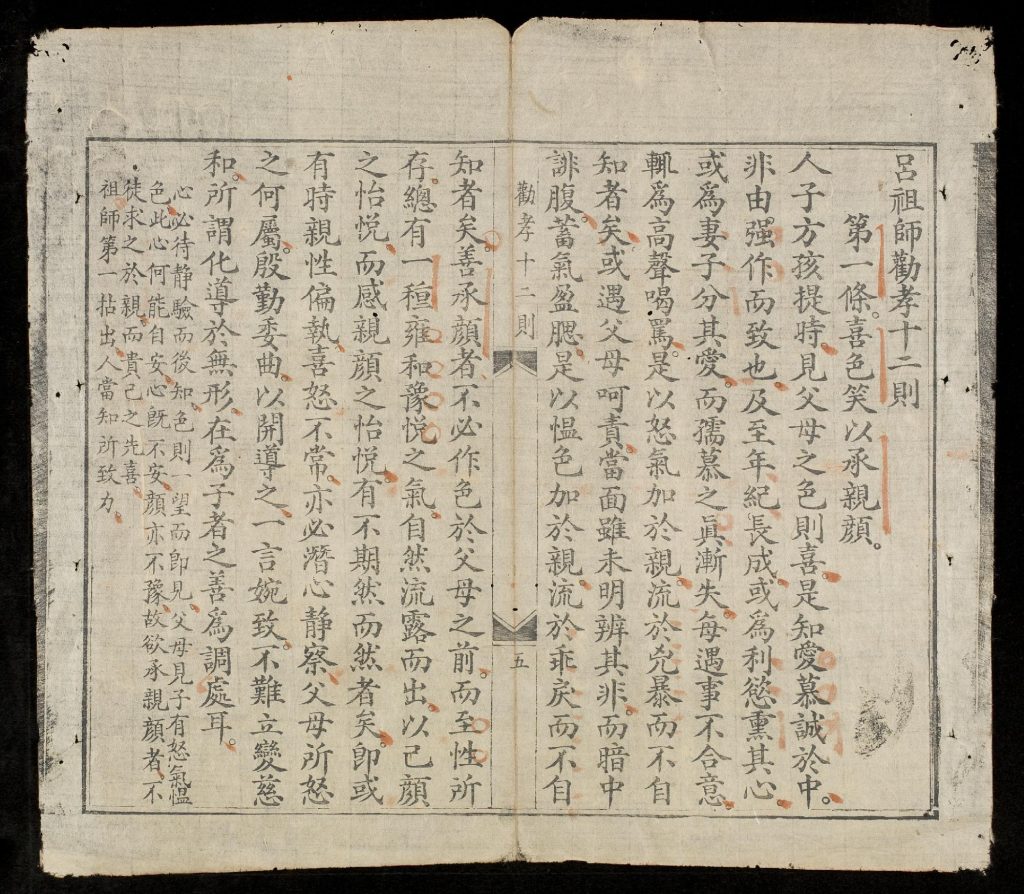 呂祖師勸孝十二則
第一條。喜色笑以承親顔。
人子方孩提時。見父母之色則喜。是知愛慕誠於中。
非由强作而致也。及至年紀長成。或爲利慾熏其心。
或爲妻子分其愛。而孺慕之眞漸失。每遇事不合意。
輒爲高聲喝罵。是以怒氣加於親。流於兇暴而不自
知者矣。或遇父母呵責。當面雖未明辨其非。而暗中
誹腹。蓄氣盈腮。是以愠色加於親。流於乖戾而不自
勸孝十二則
五
知者矣。善承顔者。不必作色於父母之前。而至性所
存。總有一種雍和豫悅之氣。自然流露而出。以己顔
之怡悅。而感親顔之怡悅。有不期然而然者矣。卽或
有時親性偏執。喜怒不常。亦必潛心静察。父母所怒
之何屬。殷勤委曲。以開導之。一言婉致。不難立變慈
和。所謂化導於無形。在爲子者之善爲調處耳。
心必待静驗而後知。色則一望而卽見。父母見子有怒氣愠
色。此心何能自安。心旣不安。顔亦不豫。故欲承親顔者。不
徒求之於親。而貴己之先喜。
祖師第一拈出。人當知所致力。